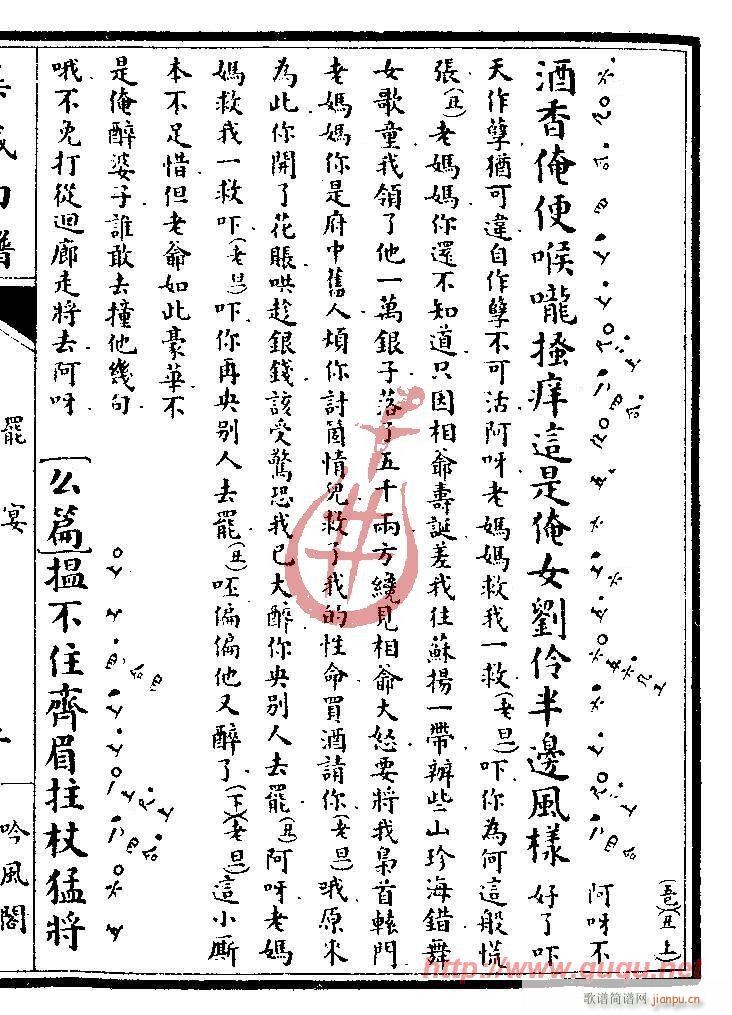 酒香俺便喉嚨搔痒這是俺女劉伶半邊風樣 好了吓 阿呀不
(丑上)
天作孽猶可違自作孽不可活阿呀老媽媽救我一救(老旦)吓你為何這般慌
張(丑)老媽媽你還不知道只因相爺壽誕差我往蘇揚一帶辦些山珍海錯舞
女歌童我領了他一萬銀子落了五千兩方纔見相爺大怒要將我梟首轅門
老媽媽你是府中舊人煩你討箇情兒救了我的性命買酒請你(老旦)哦原來
為此你開了花賬哄趁銀錢該受驚恐我已大醉你央別人去罷(丑)阿呀老媽
媽救我一救吓(老旦)吓你再央別人去罷(丑)呸偏偏他又醉了(下)(老旦)這小厮
本不足惜但老爺如此豪華不
是俺醉婆子誰敢去撞他幾句
哦不免打從迴廊走將去阿呀
[么篇]揾不住齊眉拄杖猛將
罷宴
吟風閣
http://www.guqu.net
歌谱简谱网
jianpu.cn